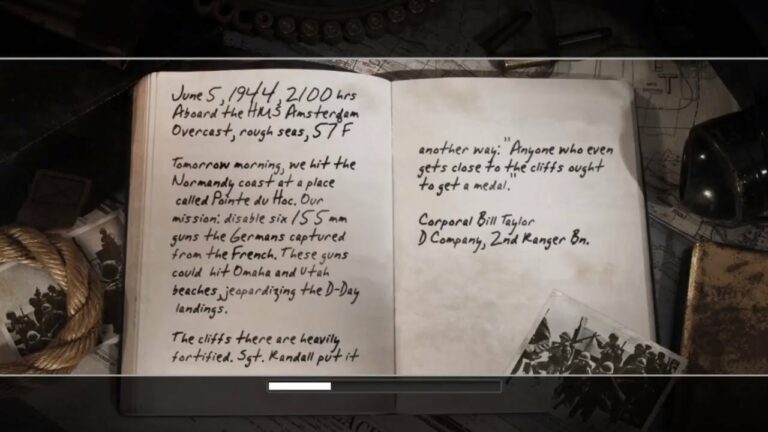 June 5, 1944, 2100 hrs
Aboard the HMS Amsterdam
Overcast, rough seas, 57 F
Tomorrow morning, we hit the
Normandy coast at a place
called Pointe du Hoc. Our
mission: disable six 155 mm
guns the Germans captured
from the French. These guns
could hit Omaha and Utah
beaches, jeopardizing the D-Day
landings.
The cliffs there are heavily
fortified. Sgt. Randall put it
another way: "Anyone who even
gets close to the cliffs ought
to get a medal."
Corporal Bill Taylor
D Company, 2nd Ranger Bn.